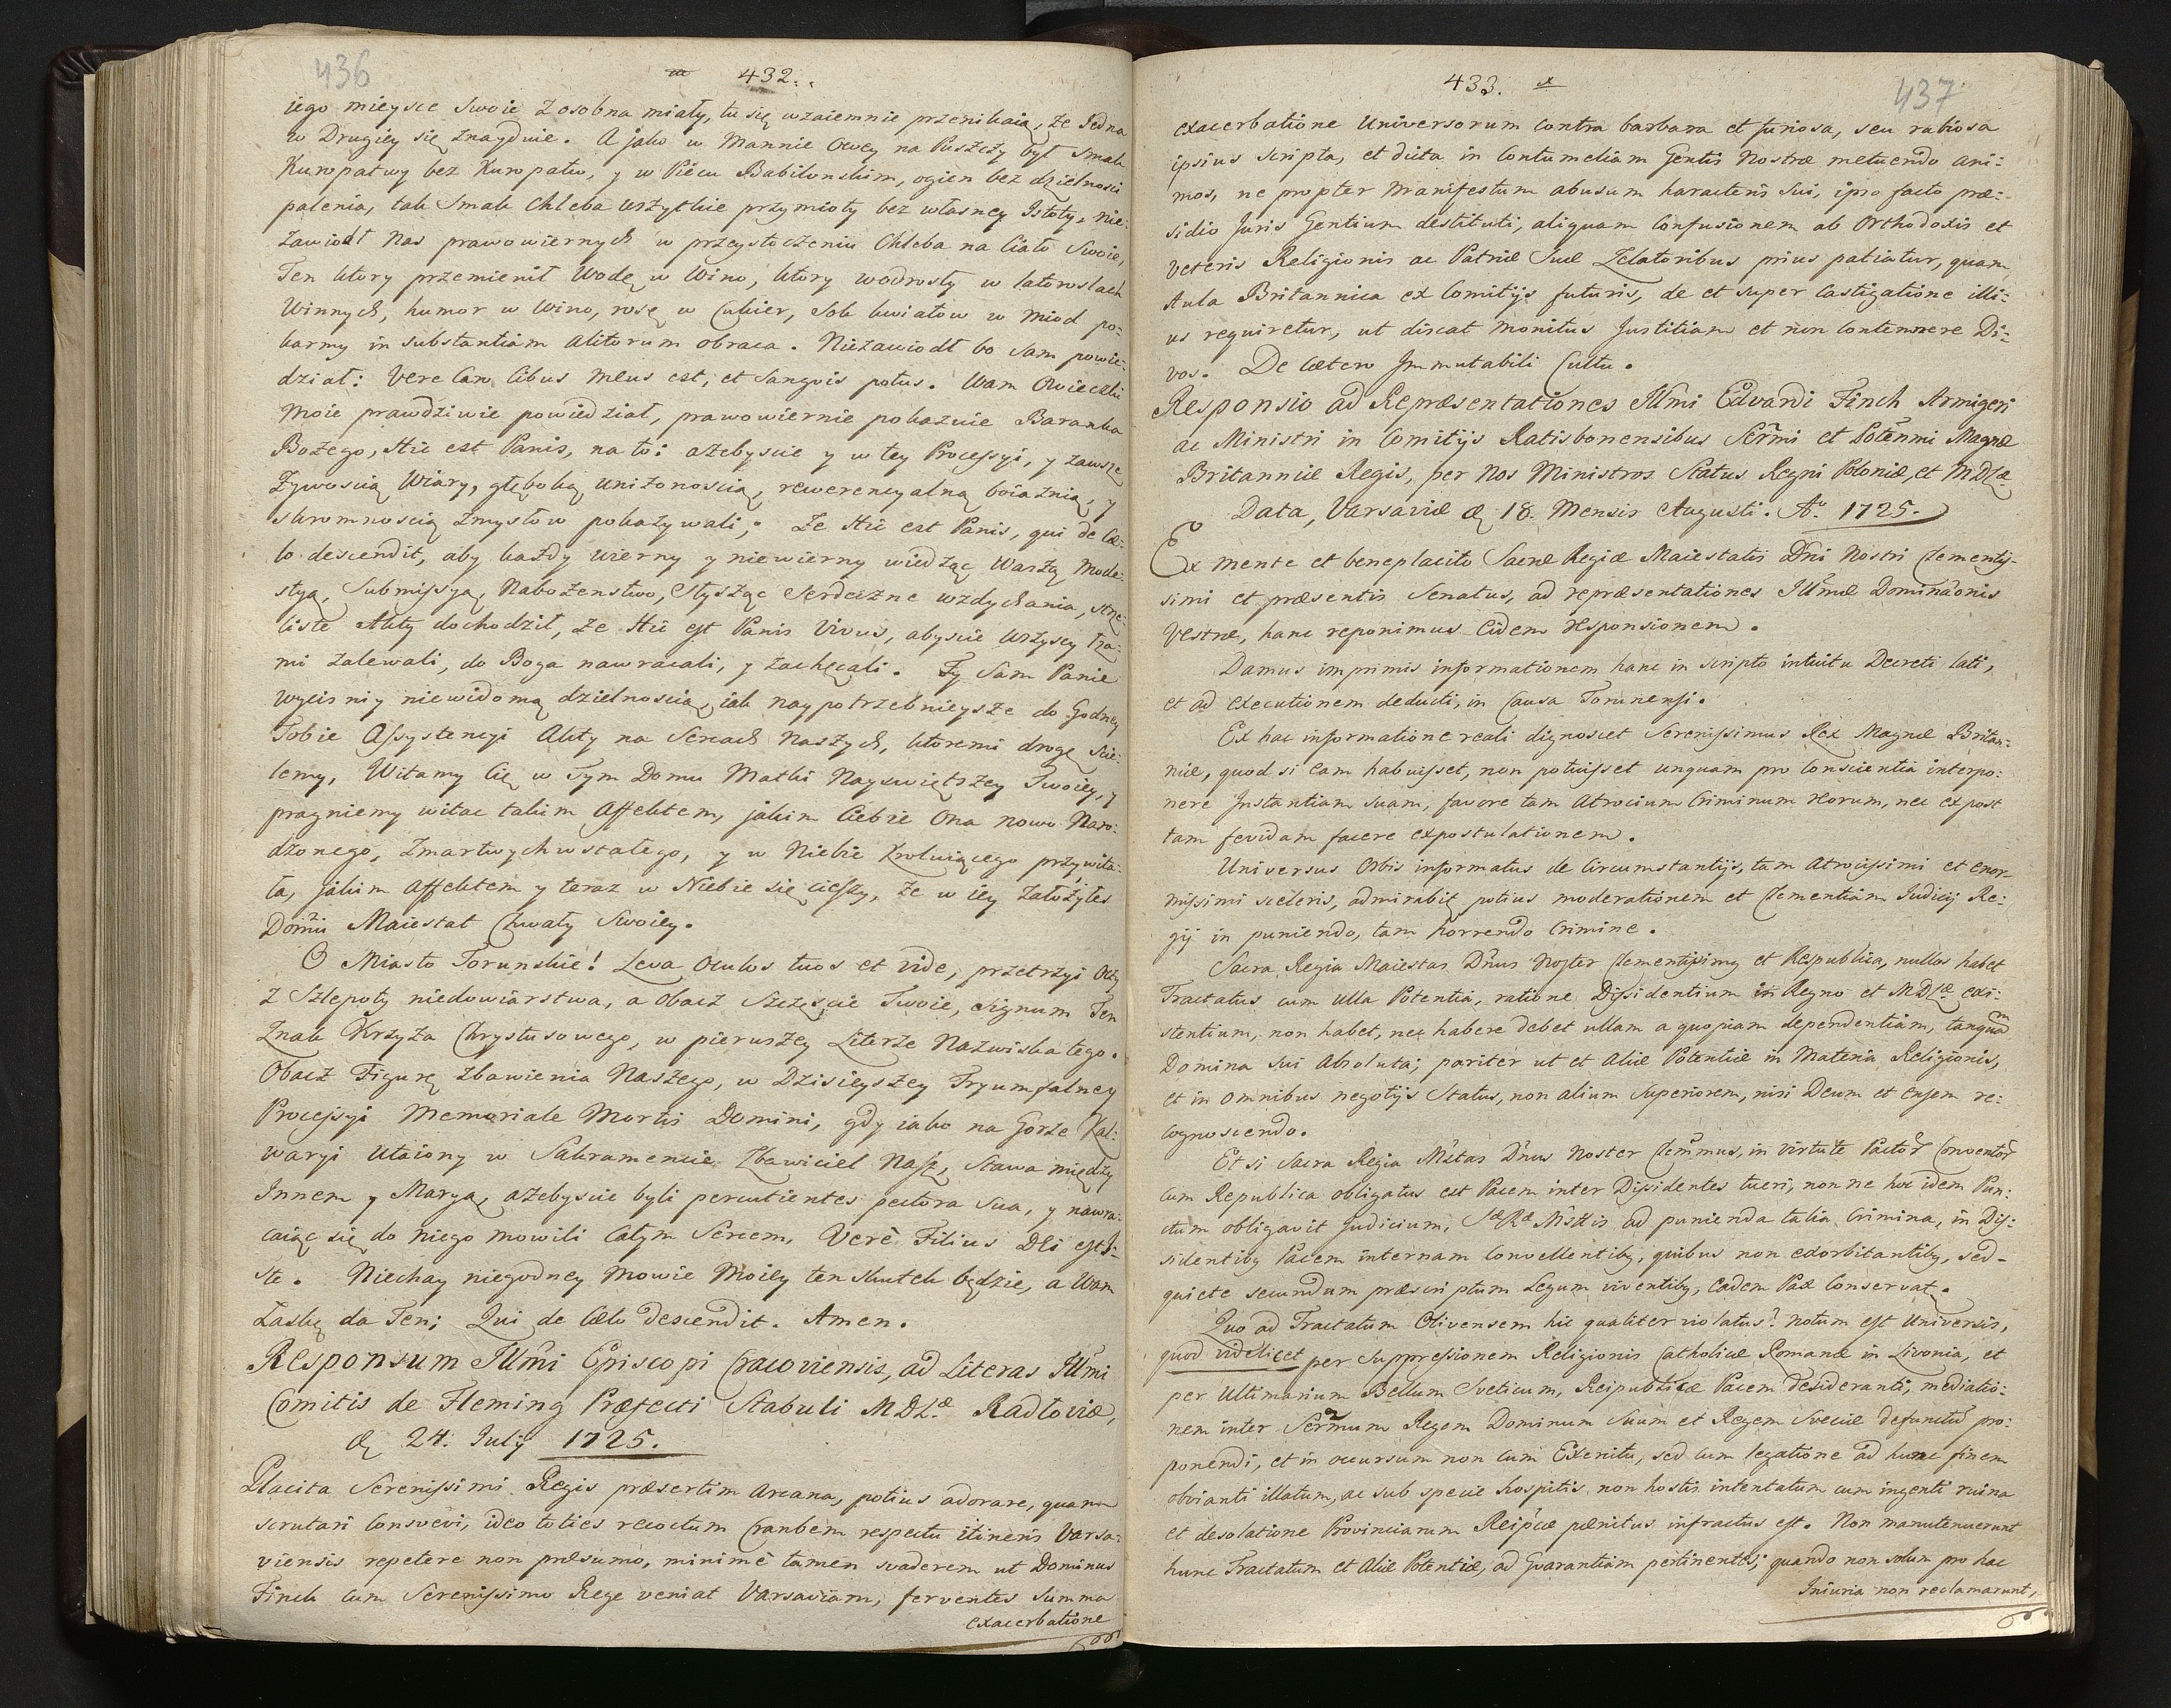 436
432.
iego mieysce Swoie z osobna miały, tu się wzaiemnie przenikaią, że Jedna
w Drugiey się znayduie. A jako w Mannie Owey na Puszczy był Smak
Kuropatwy bez Kuropatw, y w Piecu Babilonskim, ogien bez dzielnosci
palenia, tak Smak Chleba wszytkie przymioty bez własney Istoty, nie:
zawiodł Nas prawowiernych w przeystoczeniu Chleba na Ciało Swoie,
Ten ktory przemienił Wodę w Wino, ktory wodrosty w latoroslach
Winnych, humor w Wino, rosę w Cukier, Sok kwiatow w Miod po:
karmy in substantiam alitorum obraca. Niezawiodł bo Sam powie:
dział: Vere Caro Cibus Meus est, et Sangvis potus. Wam Owieczki
Moie prawdziwie powiedział, prawowiernie pokazuie Baranka
Bożego, Hic est Panis, na to: ażebyscie y w tey Processyi, y zawsze
Zywoscią Wiary, głęboką uniżonoscią, rewerencyalną boiaznią, y
skromnoscią Zmysłow pokazywali; Ze Hic est Panis, qui de Cœ:
lo descendit, aby każdy wierny y niewierny widząc Waszą Mode:
styą, Submissyą, Nabożenstwo, Słysząc Serdeczne wzdychania, strze:
liste Akty dochodził, że Hic est Panis Vivus, abyscie wszyscy łza:
mi zalewali, do Boga nawracali, y zachęcali. Ty Sam Panie
wycisniy niewidomą dzielnoscią, iak naypotrzebnieysze do Godney
Tobie Assystencyi Akty na Sercach Naszych, ktoremi drogę scie:
lemy, Witamy Cię w Tym Domu Matki Nayswiętszey Twoiey, y
pragniemy witac takim Affektem, jakim Ciebie Ona nowo Naro:
dzonego, Zmartwychwstałego, y w Niebie Kroluiącego przywita:
ła, jakim Affektem y teraz w Niebie się cieszy, że w iey założyłes
Domu Maiestat Chwały Swoiey.
O Miasto Torunskie! Leva Oculos tuos et vide, przetrzyi Oczy
z Szlepoty niedowiarstwa, a obacz Szczęscie Twoie, Signum Ten
Znak Krzyża Chrystusowego, w pierwszey Literze Nazwiska tego.
Obacz Figurę zbawienia Naszego, w Dzisieyszey Tryumfalney
Processyi Memoriale Mortis Domini, gdy iako na Gorze Kal:
waryi Utaiony w Sakramencie Zbawiciel Nasz, Stawa między
Innem y Maryą, ażebyscie byli percutientes pectora Sua, y nawra:
caiąc się do niego mowili Całym Sercem, Verè Filius DEi est I:
ste. Niechay niegodney Mowie Moiey ten skutek będzie, a Wam
Łaskę da Ten; Qui de Cœlo descendit. Amen.
Responsum Illmi Episcopi Cracoviensis, ad Literas Illmi
Comitis de Fleming Præfecti Stabuli MDLæ. Radłoviæ,
24. July 1725.
Placita Serenissimi Regis præsertim Arcana, potius adorare, quam
scrutari Consvevi, ideo toties recoctum Crambem respectu itineris Varsa:
viensis repetere non præsumo, minimè tamen svaderem ut Dominus
Finch cum Serenissimo Rege veniat Varsaviam, ferventes Summa
exacerbatione
433.
437
exacerbatione Universorum contra barbara et furiosa, seu rabiosa
ipsius scripta, et dicta in Contumeliam Gentis Nostræ metuendo ani:
mos, ne propter Manifestum abusum haracteris Sui, ipso facto præ:
sidio Juris Gentium destituti, aliquam Confusionem ab Orthodoxis et
Veteris Religionis ac Patriæ Suæ Zelatoribus prius patiatur, quam
Aula Britannica ex Comitijs futuris, de et super Castigatione illi:
us requiretur, ut discat monitus Justitiam et non Contemnere Di:
vos. De cætero Immutabili Cultu.
Responsio ad Repræsentationes Illmi Edvardi Finch Armigeri
ac Ministri in Comitijs Ratisbonensibus Sermi et Potenmi Magnæ
Britanniæ Regis, per Nos Ministros Status Regni Poloniæ, et MDLæ
Data, Varsaviæ 18. Mensis Augusti. Ao. 1725.
Ex mente et beneplacito Sacræ Regiæ Maiestatis Dni Nostri Clementis-
simi et præsentis Senatus, ad repræsentationes Illmæ Dominaonis
Vestræ, hanc reponimus Eidem responsionem.
Damus imprimis informationem hanc in scripto intuitu Decreti lati,
et ad executionem deducti, in Causa Torunensi.
Ex hac informatione reali dignoscet Serenissimus Rex Magnæ Britan:
niæ, quod si Eam habuisset, non potuisset unquam pro Conscientia interpo:
nere Instantiam suam, favore tam Atrocium Criminum Reorum, nec ex post
tam fervidam facere expostulationem.
Universus Orbis informatus de Circumstantijs, tam Atrocissimi et enor-
missimi sceleris, admirabit potius moderationem et Clementiam Judicij Re:
gij in puniendo, tam horrendo Crimine.
Sacra Regia Maiestas Dnus Noster Clementissimus et Respublica, nullos habet
Tractatus cum ulla Potentia, ratione Dissidentium in Regno et MDLæ exi:
stentium, non habet, nec habere debet ullam a quopiam dependentiam, tanquam
Domina sui Absoluta; pariter ut et Aliæ Potentiæ in Materia Religionis,
et in omnibus negotijs Status, non alium Superiorem, nisi Deum et Ensem re:
cognoscendo.
Et si Sacra Regia Mtas Dnus Noster Clemmus, in virtute Pactor Conventor
cum Republica obligatus est Pacem inter Dissidentes tueri, non ne hoc idem Pun:
ctum obligavit Judicium, SæRæ Mttis ad punienda talia Crimina, in Dis:
sidentibus Pacem internam Convellentibus, quibus non exorbitantibus, sed-
quiete secundum præscriptum Legum viventibus, Eadem Pax Conservat.
Quo ad Tractatum Olivensem hic qualiter violatus? notum est Universis,
quod videlicet per Suppressionem Religionis Catholicæ Romanæ in Livonia, et
per Ultimarium Bellum Sveticum, Reipublicæ Pacem desideranti, mediatio:
nem inter Sermum Regem Dominum Suum et Regem Sveciæ defunctum pro:
ponendi, et in occursum non cum Exercitu, sed cum legatione ad hunc finem
obvianti illatum, ac sub specie hospitis non hostis intentatum cum ingenti ruina
et desolatione Provinciarum Reipcæ pænitus infractus est. Non manutenuerunt
hunc Tractatum et Aliæ Potentiæ, ad Gvarantiam pertinentes; quando non solum pro hac
Iniuria non reclamarunt,